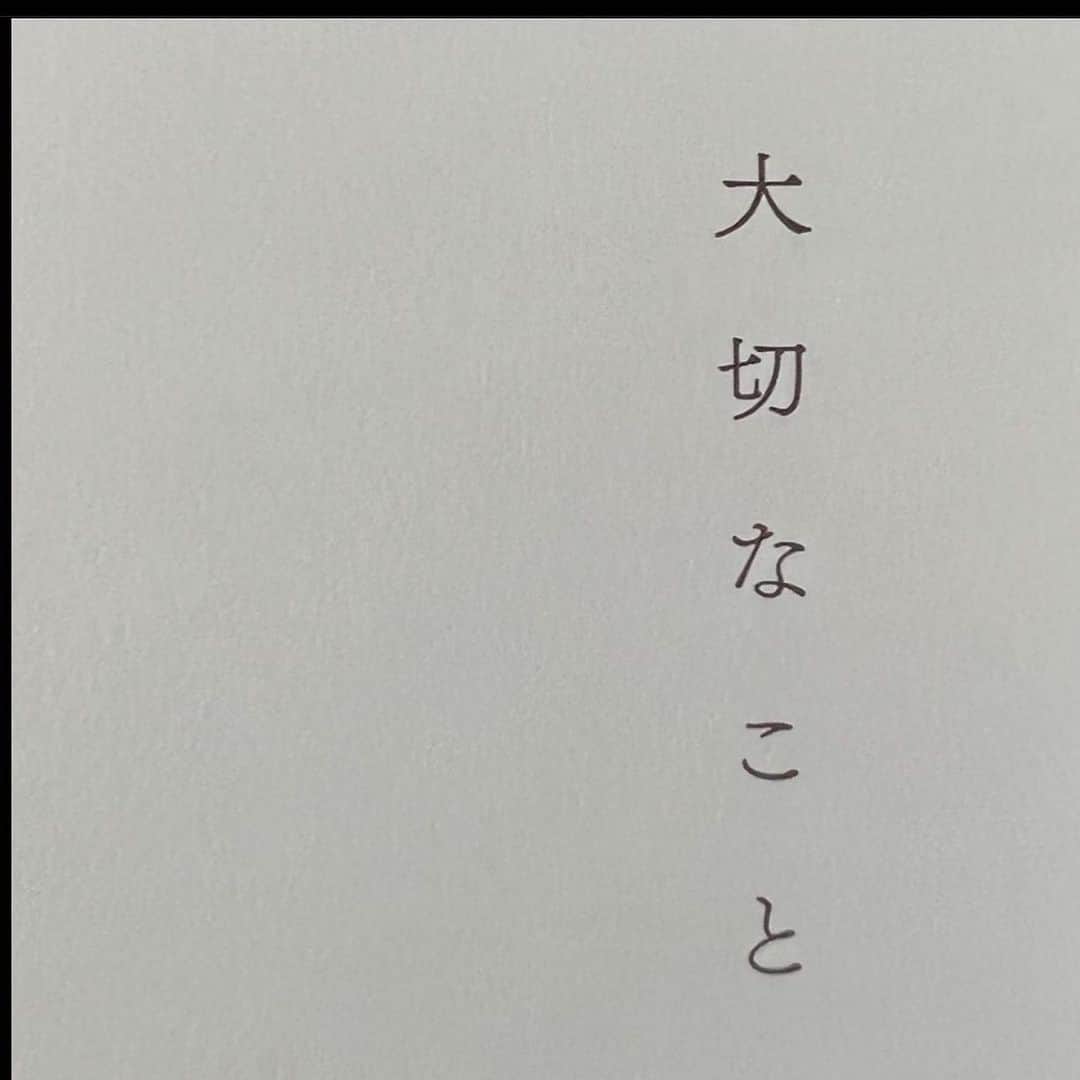 大切なこと